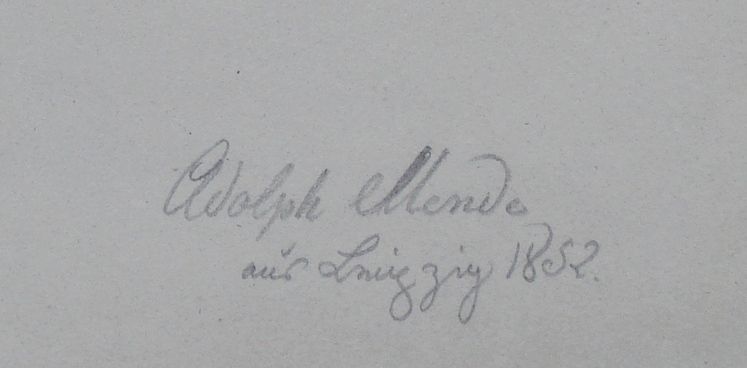 Adolph Mende
aus Leipzig 1852.